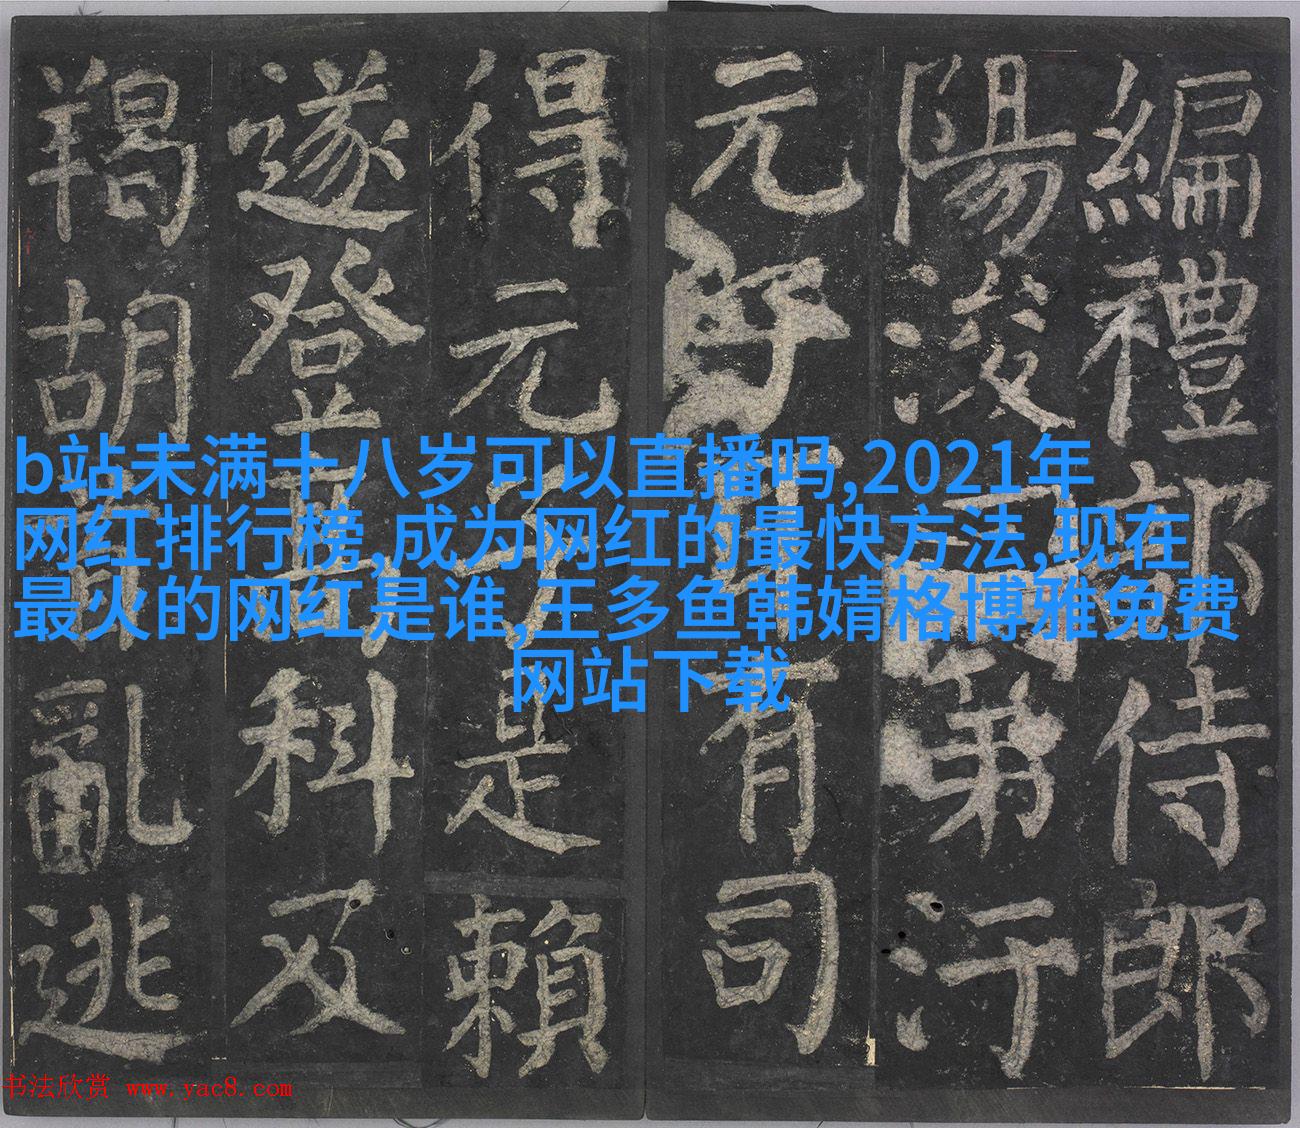 編禮部侍郎
陽浚曰第汙
元子耳有司
得元子是賴
遂登高科及
羯胡首亂逃
b站未满十八岁可以直播吗,2021年
网红排行榜,成为网红的最快方法,现在
最火的网红是谁,王多鱼韩婧格博雅免费
网站下载
书法欣赏 www.yac8.com